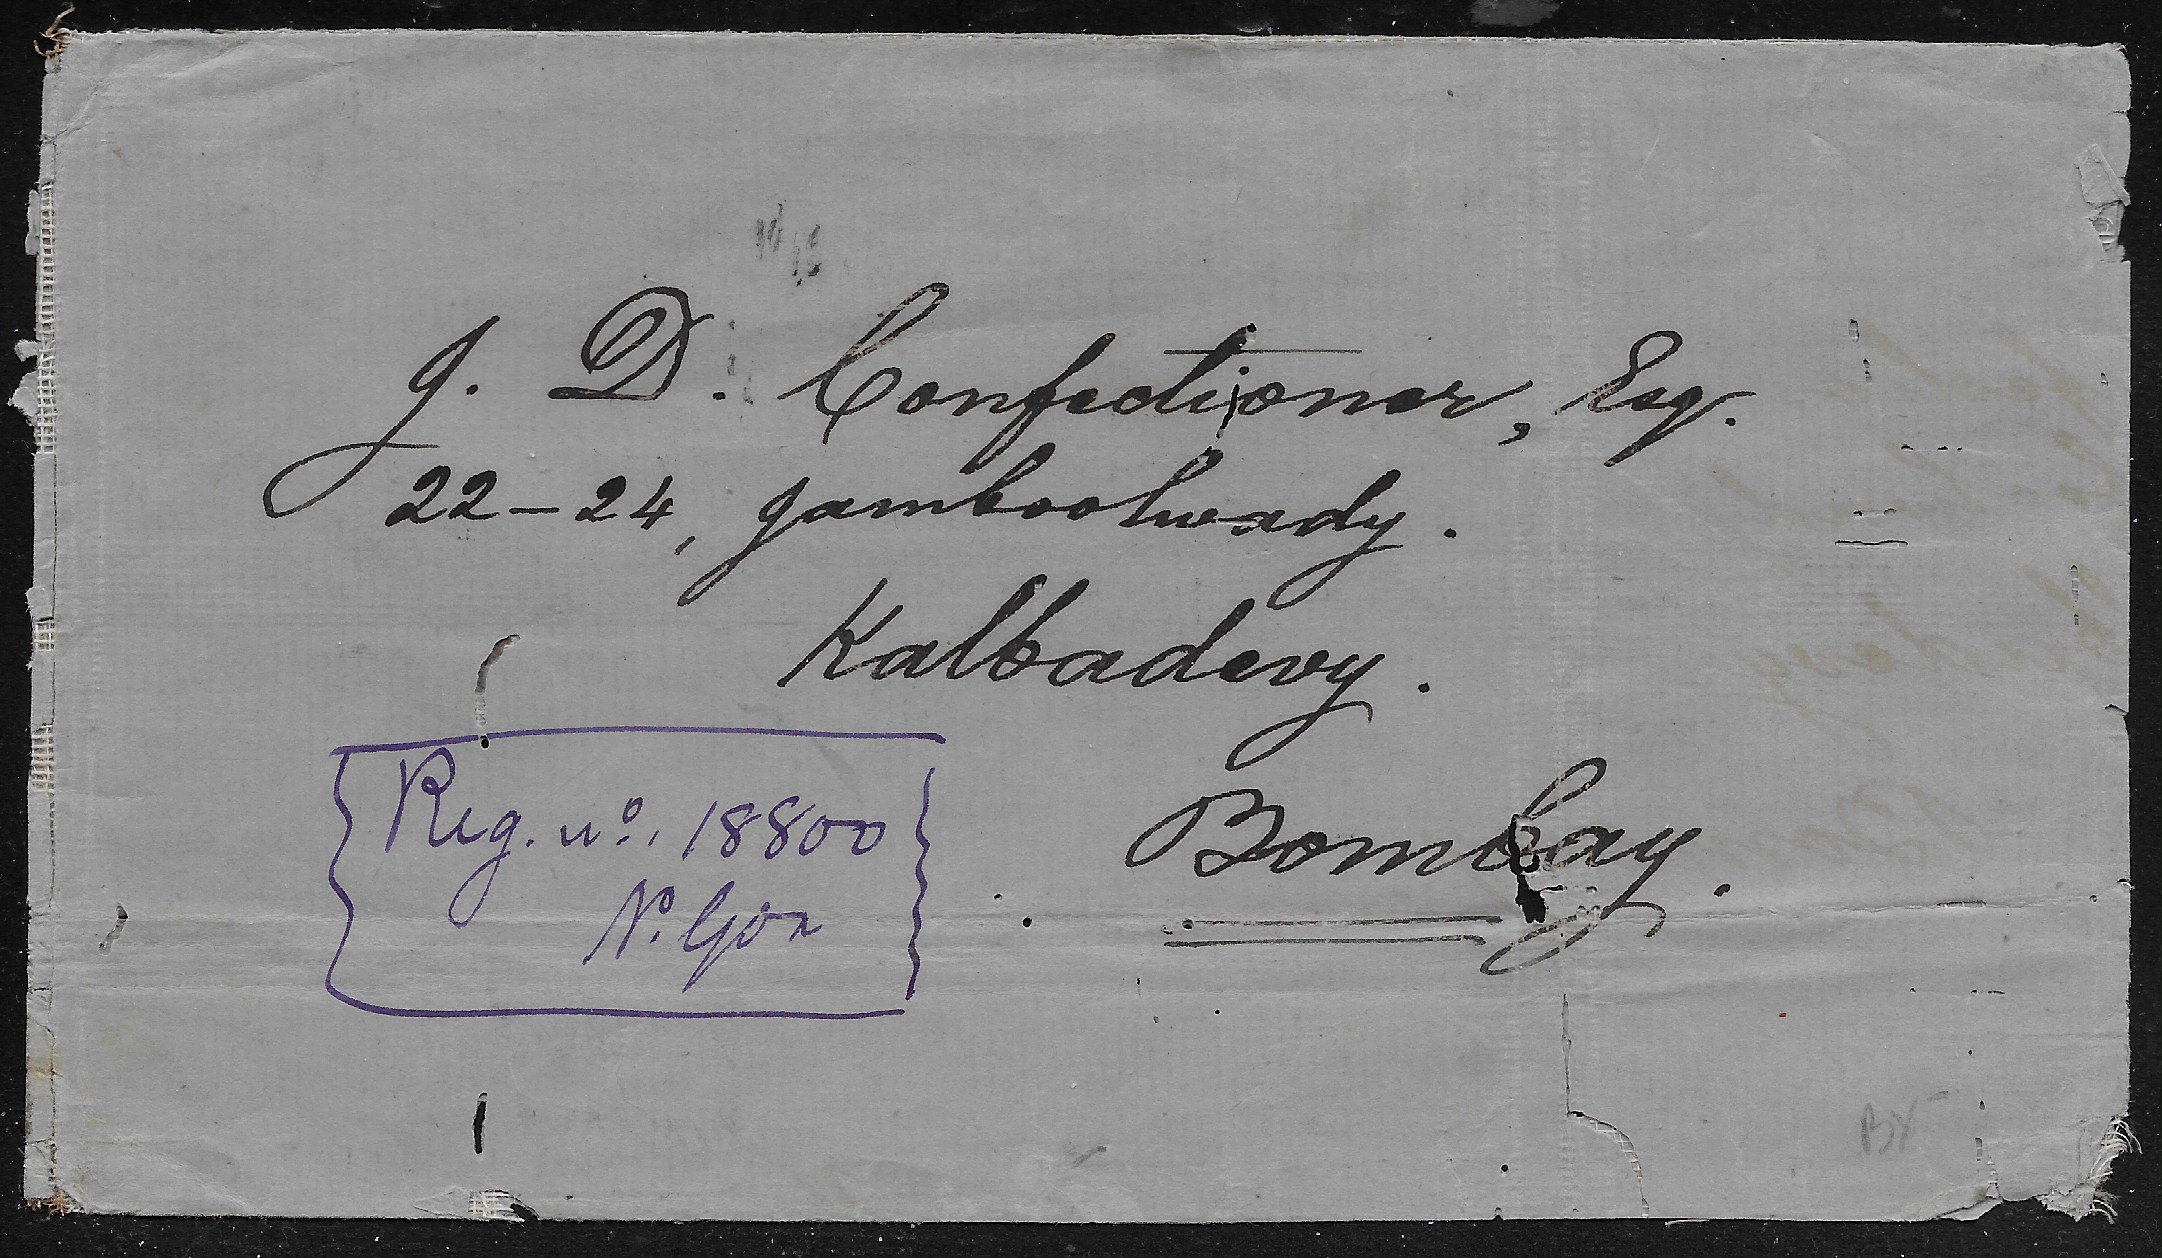 J. D. Confectioner, Esq.
22-24, Jamboolwady.
Kalbadevy.
Reg. No. 18800
N. Goa
Bombay.